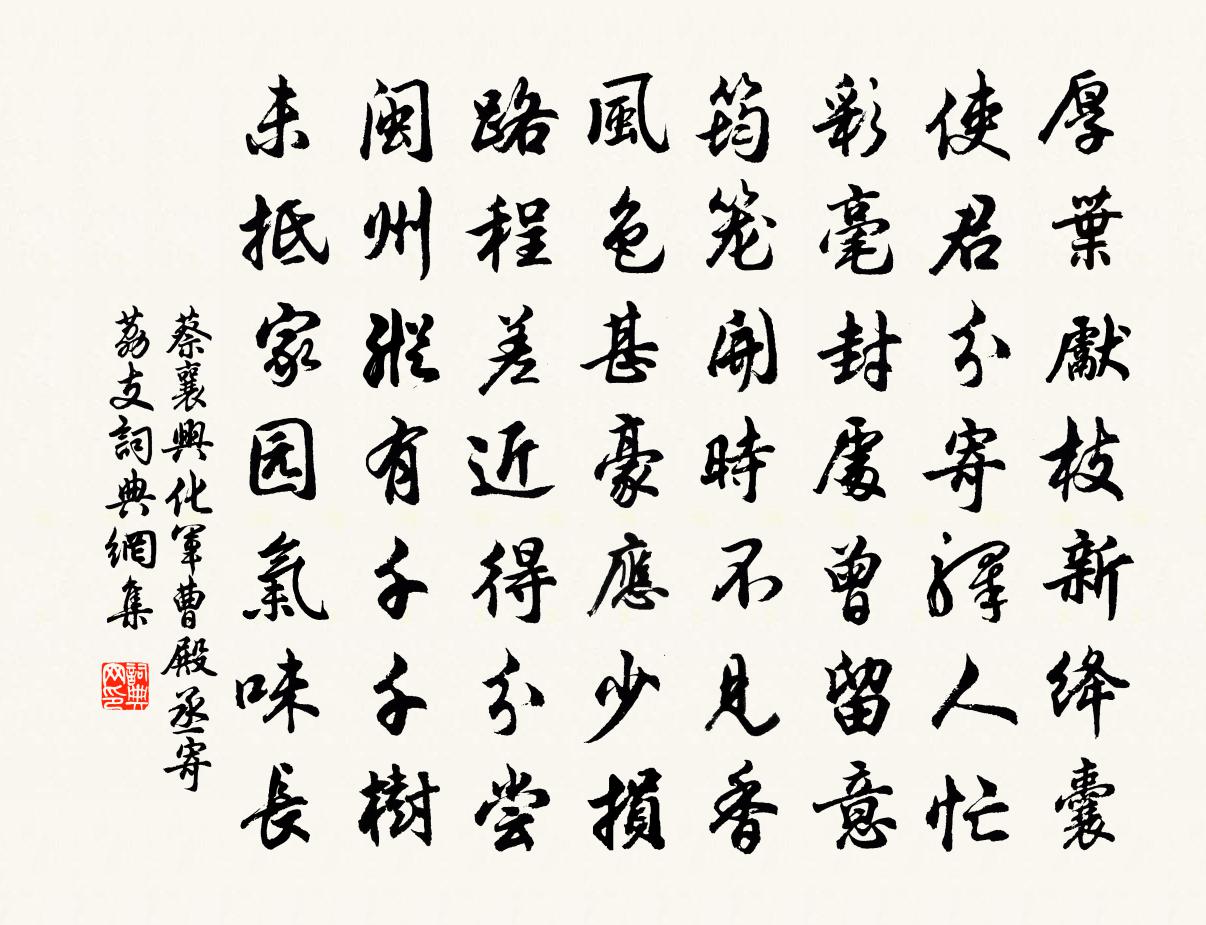 厚葉獻枝新絳囊
使君分寄驛人忙
彩毫封處曾留意
筠笼開時不見香
風色甚豪應少損
路程差近得分尝
闽州縱有千千樹
未抵家园氣味長
蔡襄興化軍曹殿丞寄
荔支詞典網集
詞典网印